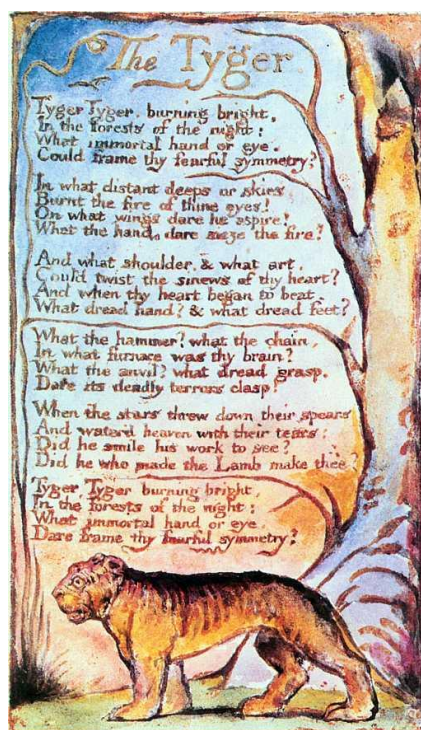 The Tyger
Tyger Tyger. burning bright,
In the forests of the night:
What immortal hand or eye.
Could frame thy fearful symmetry?
In what distant deeps or skies.
Burnt the fire of thine eyes!
On what wings dare he aspire!
What the hand, dare sieze the fire?
And what shoulder, & what art,
Could twist the sinews of thy heart?
And when thy heart began to beat.
What dread hand? & what dread feet?
What the hammer? what the chain,
In what furnace was thy brain?
What the anvil? what dread grasp.
Dare its deadly terrors clasp!
When the stars threw down their spears
And water'd heaven with their tears:
Did he smile his work to see?
Did he who made the Lamb make thee?
Tyger, Tyger burning bright,
In the forests of the night:
What immortal hand or eye,
Dare frame thy fearful symmetry?